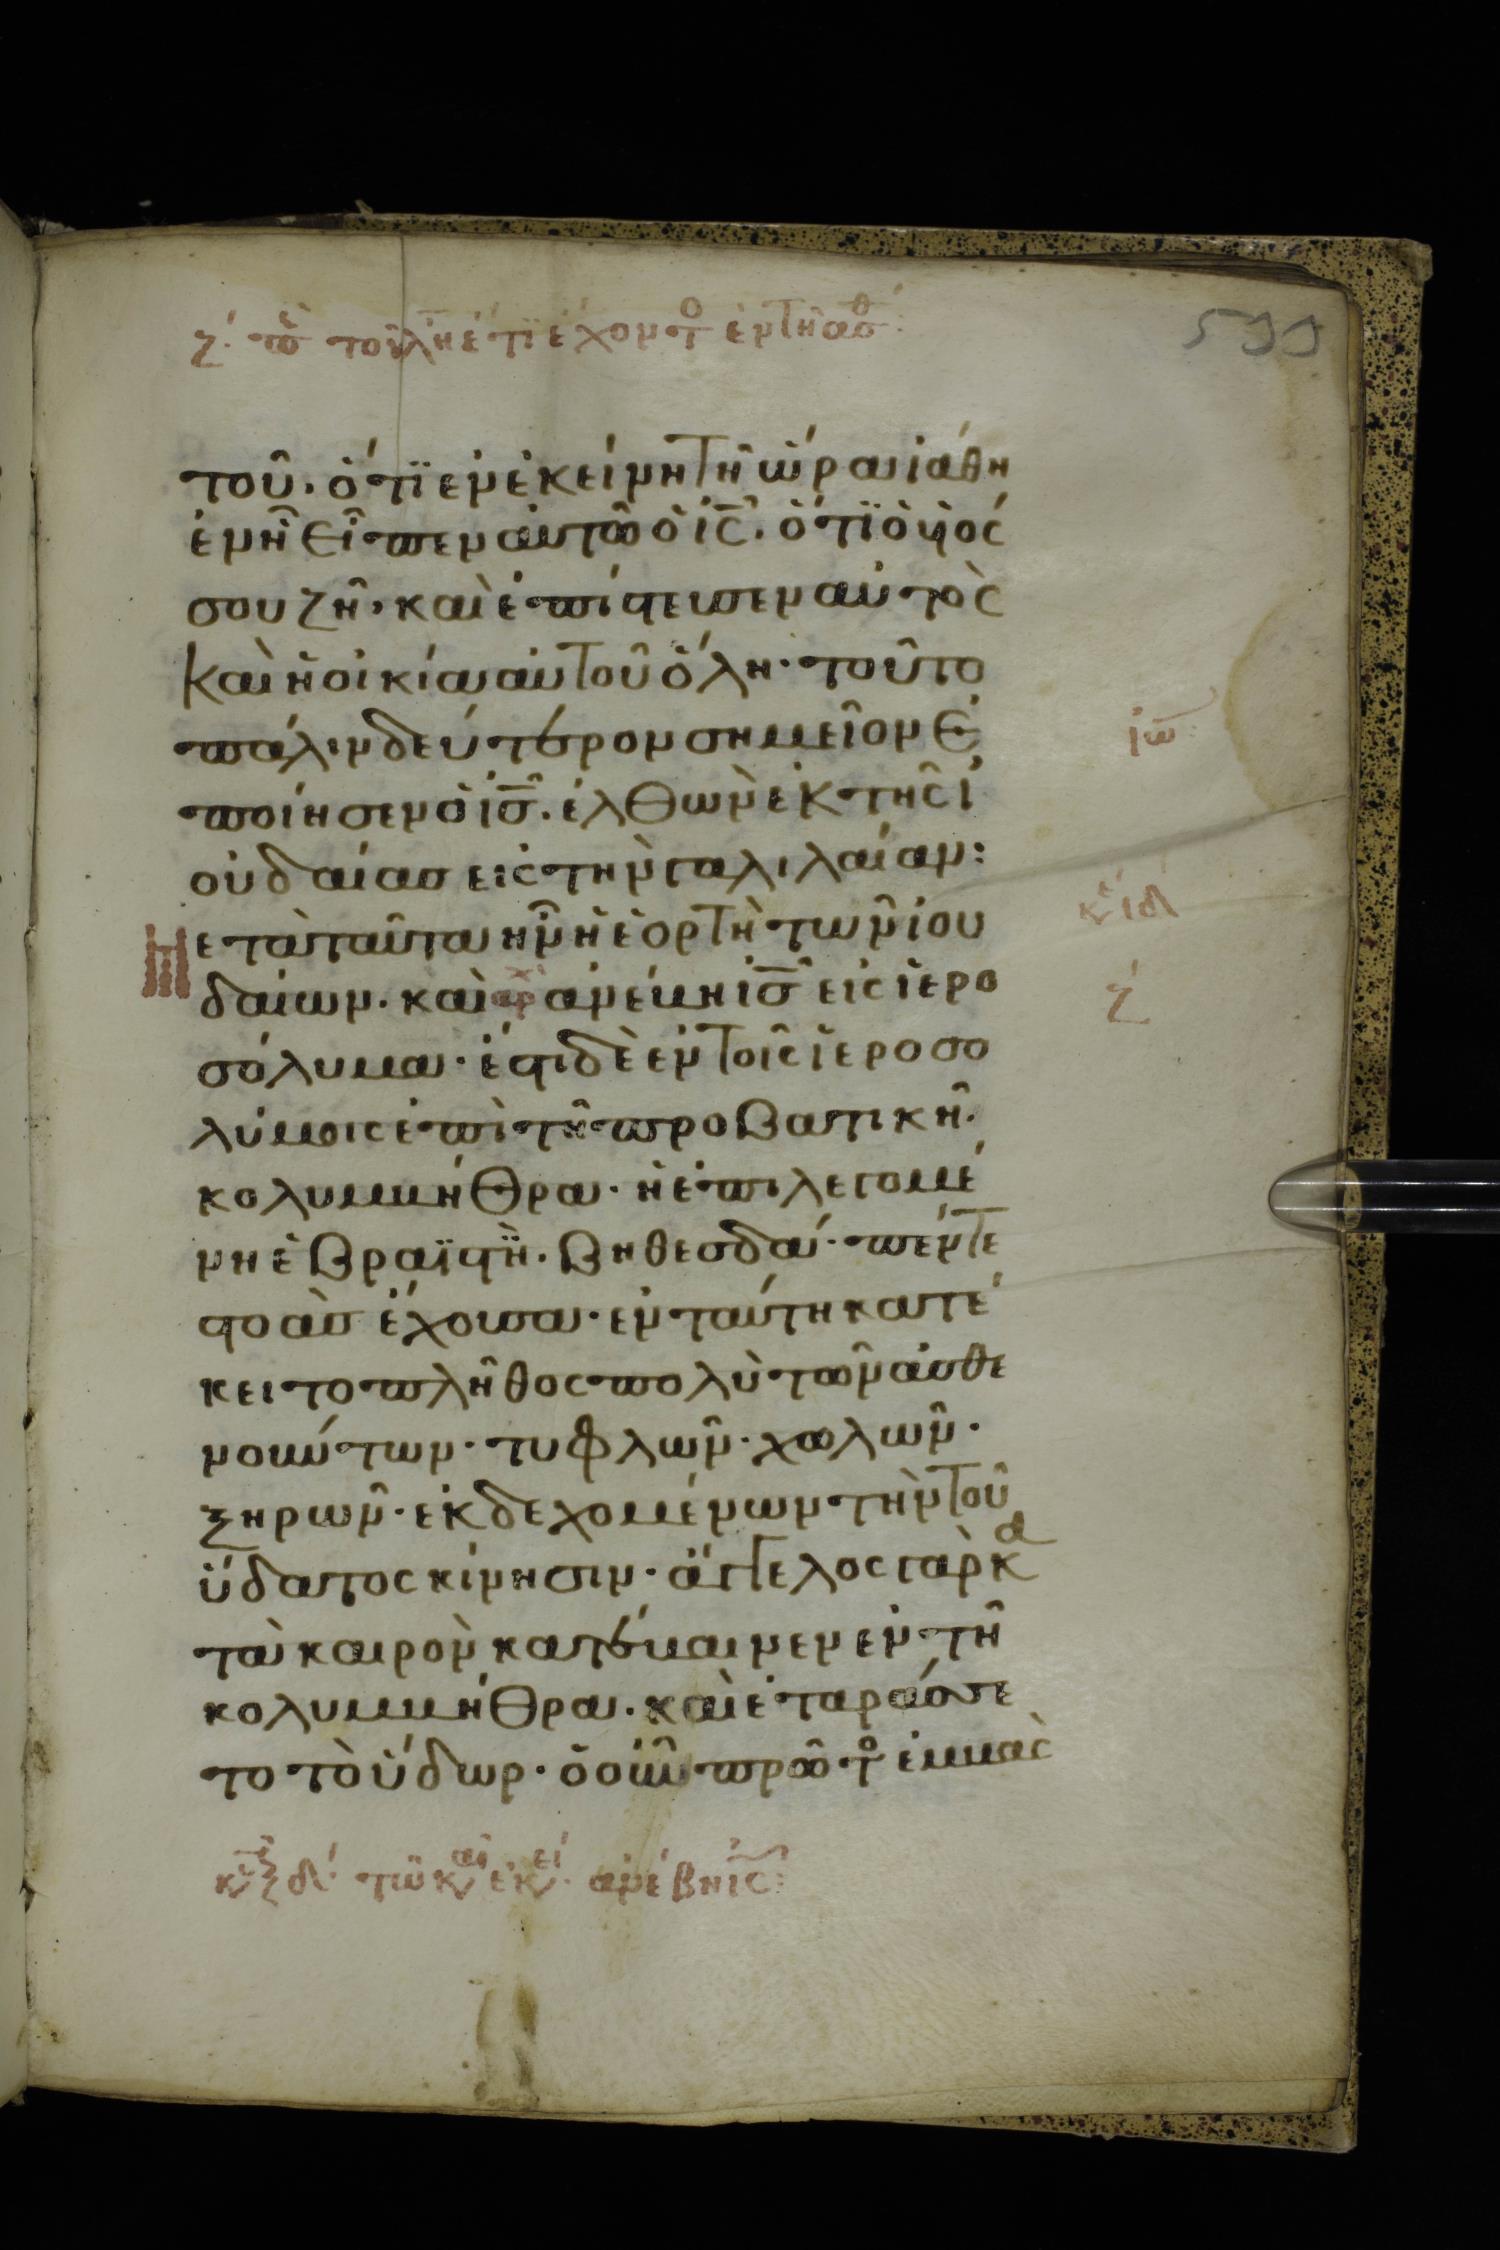 ζ περὶ τοῦ λη ἔτη ἔχοντος ἐν τῇ ἀσθ
599
τοῦ. ὅτϊ ἐν ἐκείνη τῆ ὥρα ϊάθη
ἐν ἧ εἶπεν αὐτῶ ὁ ἰς. ὅτϊ ὁ ὑιός
σου ζῆ. καὶ ἐπίστευσεν αὐτὸς
καὶ ἡ οἰκία αὐτοῦ ὅλη. τοῦτο
πάλιν δεύτερον σημεῖον ἐ
ποίησεν ὁ ἰς. ἐλθὼν ἐκ τῆς ἰ
ουδαίασ εἰς τὴν γαλιλαίαν:
Μετὰ ταῦτα ἦν ἡ ἑορτὴ τῶν ἰου
δαίων. καὶ ἀνέβη ἰς εἰς ἱερο
σόλυμα. ἔστι δὲ ἐν τοῖς ἱεροσο
λύμοις ἐπὶ τῆ προβατικῆ.
κολυμβήθρα. ἡ ἐπιλεγομέ
νη ἐβραϊστῒ. βηθεσδά. πέντε
στοὰσ ἔχουσα. ἐν ταύτη κατέ
κειτο πλῆθος πολὺ τῶν ἀσθε
νούντων. τυφλῶν. χωλῶν.
ξηρῶν. ἐκδεχομένων τὴν τοῦ
ὕδατος κίνησιν. ἄγγελος γὰρ κα
τὰ καιρὸν κατέβαινεν ἐν τῆ
κολυμβήθρα. καὶ ἐταράσσε
το τὸ ὕδωρ. ὁ οὖν πρῶτος ἐμβὰς
ἰω
ιδ
ζ
τῶ κ ἐκ. ἀνέβη ἰς